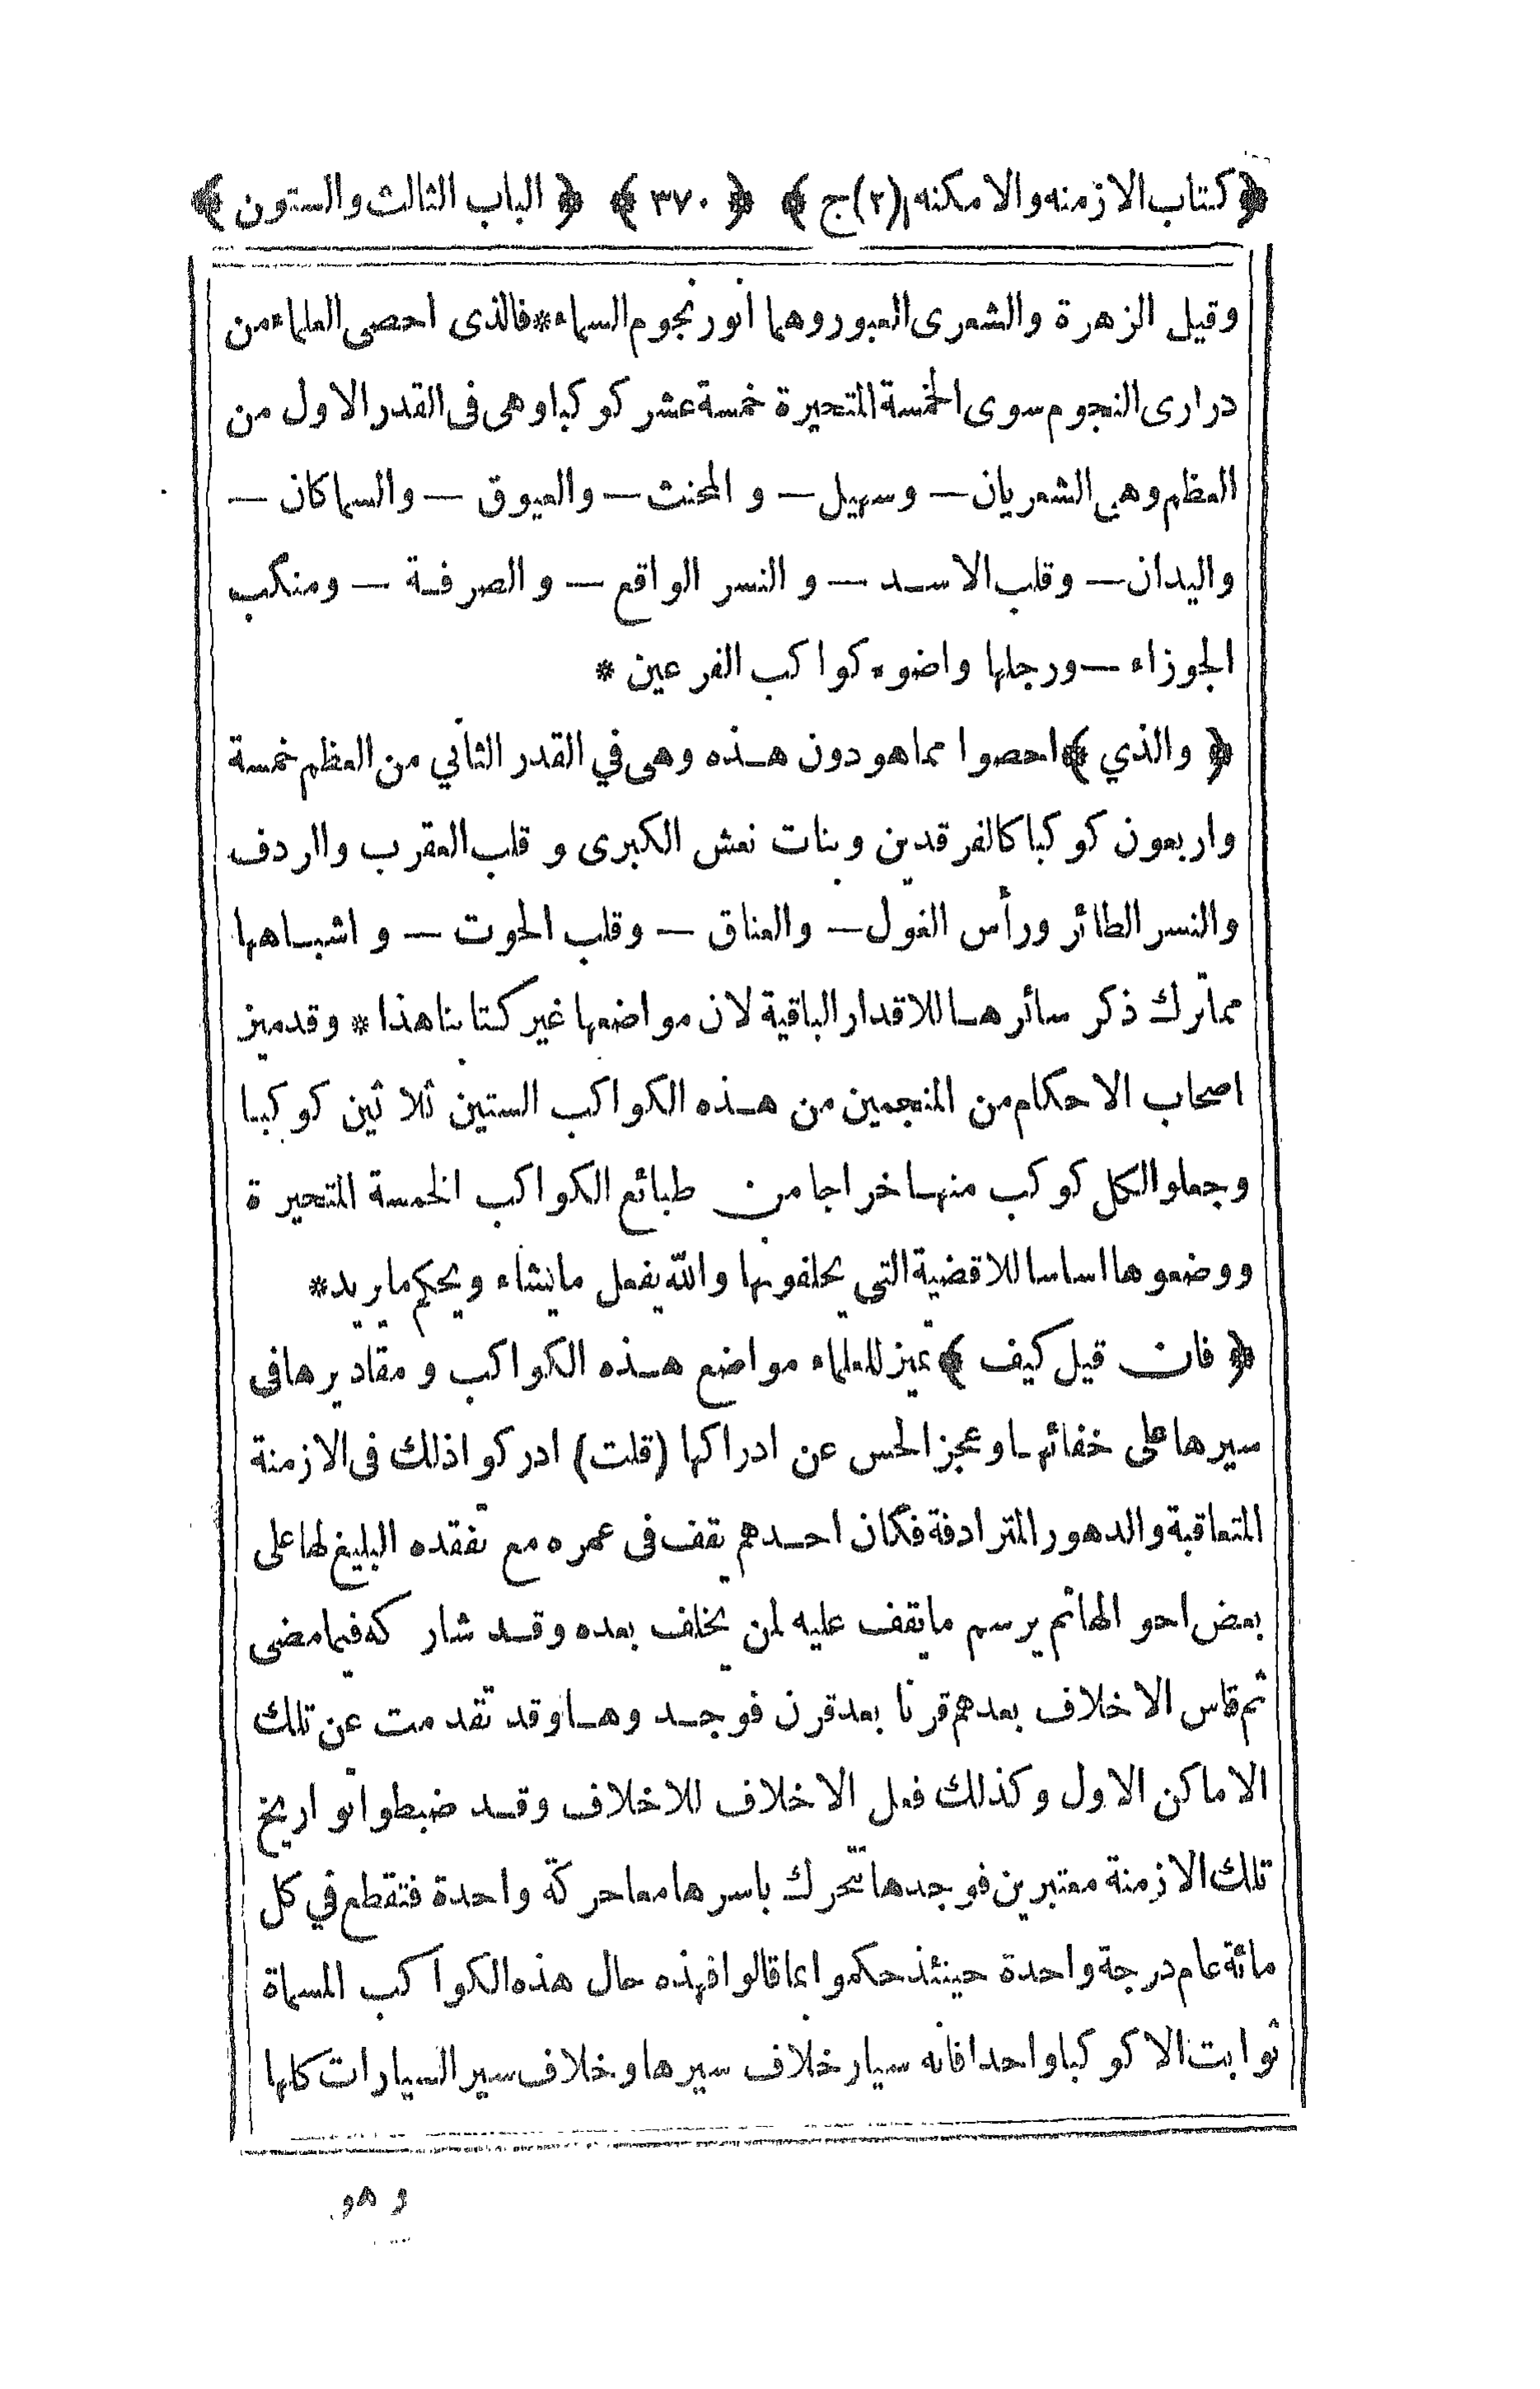 ﴿ كتاب الازمنه والامكنه (٢) ج ﴾ ﴿ ٣٧٠ ﴾ ﴿ الباب الثالث والستون ﴾
وقيل الزهرة والشعرى العبور وهما انور نجوم السماء * فالذى احصى العلماء من
درارى النجوم سوى الخمسة المتحيرة خمسة عشر كوكبا وهى فى القدر الاول من
العظم وهى الشعريان — وسهيل — و المحنث — والعيوق — والسماكان —
واليدان — وقلب الاسد — و النسر الواقع — و الصرفة — ومنكب
الجوزاء — ورجلها واضوء كواكب الفرعين *
﴿ والذي ﴾ احصوا مما هو دون هذه وهى في القدر الثاني من العظم خمسة
واربعون كوكبا كالفرقدين وبنات نعش الكبرى و قلب العقرب والردف
والنسر الطائر ورأس الغول — والعناق — وقلب الحوت — و اشباهها
مما ترك ذكر سائرها للاقدار الباقية لان مواضعها غير كتابنا هذا * وقد ميز
اصحاب الاحكام من المنجمين من هذه الكواكب الستين ثلاثين كوكبا
وجعلوا لكل كوكب منها خراجا من طبائع الكواكب الخمسة المتحيرة
ووضعوها اساسا للاقضية التى يحلفونها والله يفعل ما يشاء ويحكم ما يريد *
﴿ فان قيل كيف ﴾ تميز للعلماء مواضع هذه الكواكب و مقاديرها فى
سيرها على خفائها وعجز الحس عن ادراكها (قلت) ادركوا ذلك فى الازمنة
المتعاقبة والدهور المترادفة فكان احدهم يقف فى عمره مع تفقده البليغ لها على
بعض احوالها ثم يرسم ما يقف عليه لمن يخلف بعده وقد شاركه فيما مضى
ثم قاس الاخلاف بعدهم قرنا بعد قرن فوجدوها وقد تقدمت عن تلك
الاماكن الاول وكذلك فعل الاخلاف للاخلاف وقد ضبطوا تواريخ
تلك الازمنة معتبرين فوجدها تتحرك باسرها معا حركة واحدة فتقطع في كل
مائة عام درجة واحدة حينئذ حكموا بما قالوا فهذه حال هذه الكواكب المسماة
ثوابت الا كوكبا واحدا فانه سيار خلاف سيرها وخلاف سير السيارات كلها
وهو